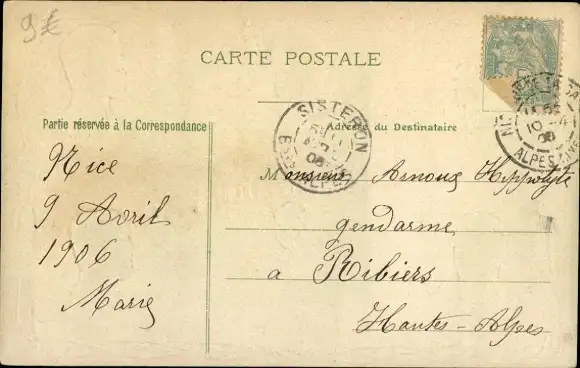 9€
CARTE POSTALE
Partie réservée à la Correspondance
Adresse du Destinataire
Nice
9 Avril
1906
Marie
Monsieur Arnoux Hippolyte
gendarme
a Ribiers
Hautes-Alpes
SISTERON
Bses ALPES
10 -4
06
ALPES